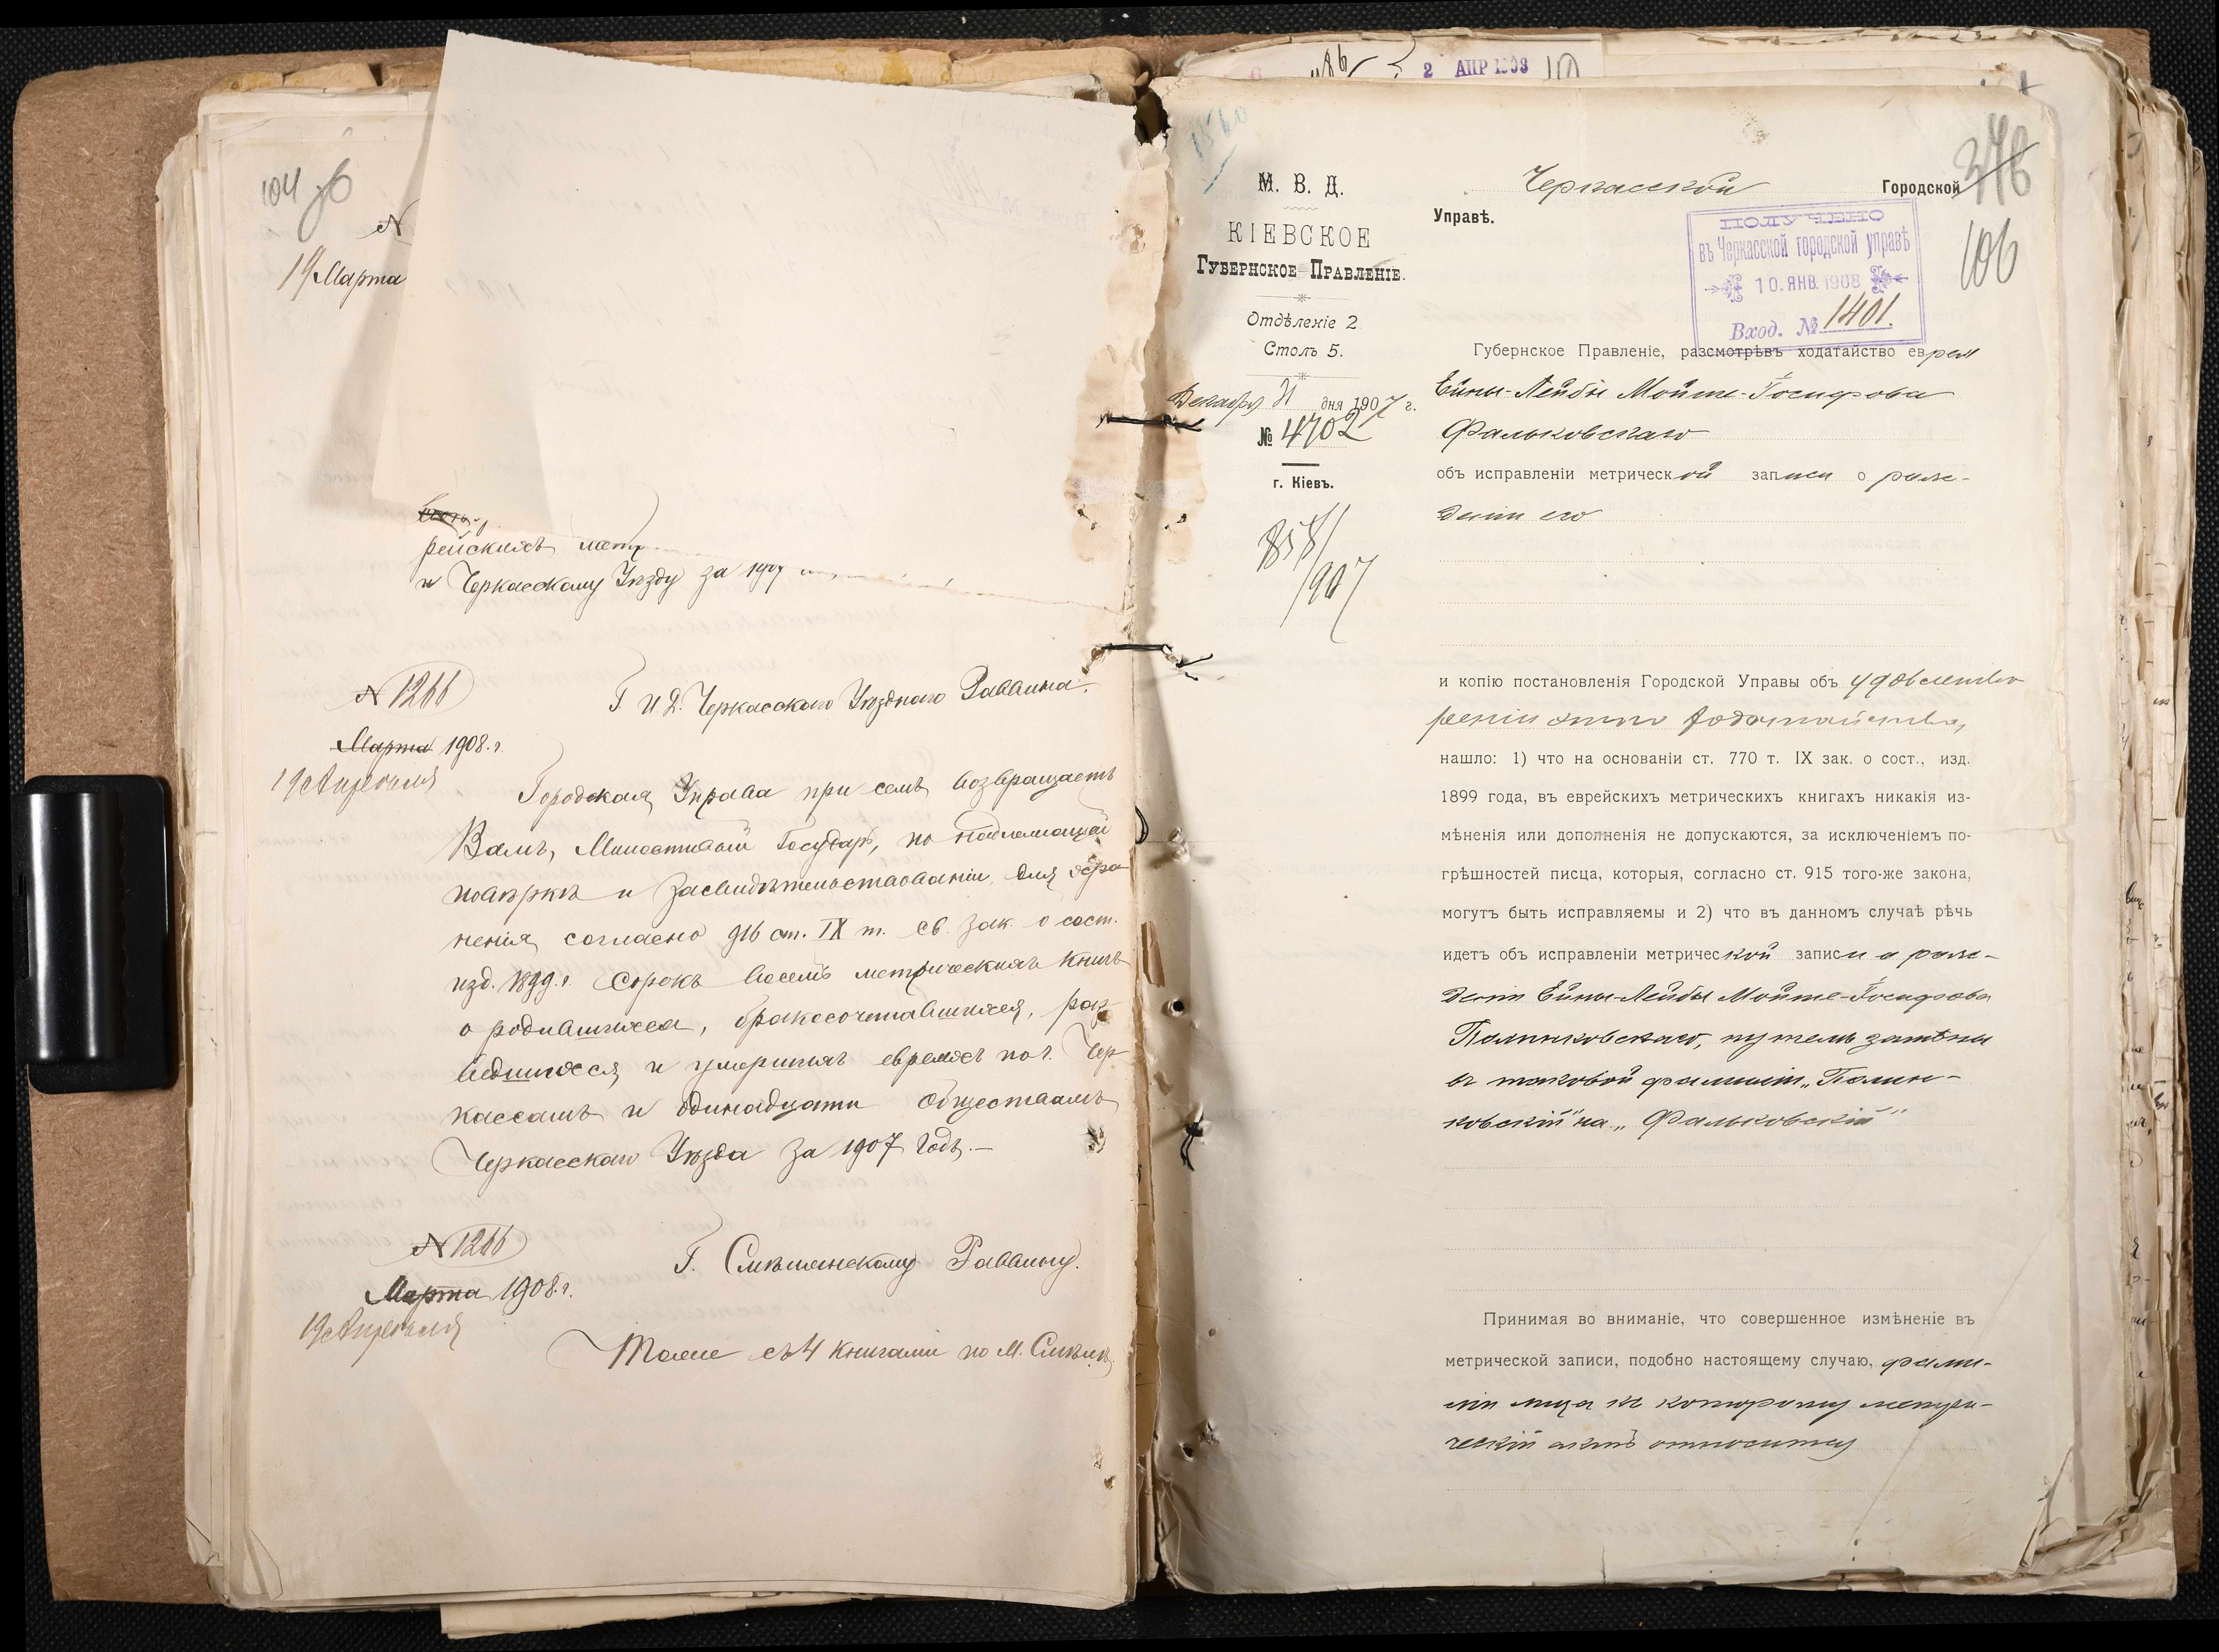 104 об
N
19 Марта
рейскихъ метр
и Черкасскому Уѣзду за 1907
N 1266
Марта 1908 г.
19 Апрѣля
Г. И. Д. Черкасскаго Уѣзднаго Раввина.
Городская Управа при семъ возвращаетъ
Вамъ, Милостивый Государь, по надлежащей
повѣркѣ и засвидѣтельствованіи, для хра
ненія, согласно 916 ст. IX т. Св. Зак. о сост.
изд. 1899 г. Сорокъ восемь метрическихъ книгъ
о родившихся, бракосочетавшихся, раз
ведшихся и умершихъ евреяхъ по г. Чер
кассамъ и одинадцати обществамъ
Черкасскаго Уѣзда за 1907 годъ.—
N 1266
Марта 1908 г.
19 Апрѣля
Г. Смѣлянскому Раввину.
Тоже съ 4 книгами по М. Смѣлѣ
2 АПР 1908
1560
М. В. Д.
КІЕВСКОЕ
ГУБЕРНСКОЕ ПРАВЛЕНІЕ.
Отдѣленіе 2
Столъ 5.
Декабря 31 дня 1907 г.
№ 4702
г. Кіевъ.
Черкасской Городской
Управѣ.
106
ПОЛУЧЕНО
въ Черкасской городской управѣ
10. ЯНВ. 1908
Вход. № 1401.
Губернское Правленіе, разсмотрѣвъ ходатайство еврея
Ейны-Лейбы Мойше-Іосифова
Фальковскаго
объ исправленіи метрической записи о рож-
деніи его
и копію постановленія Городской Управы объ удовлетво
реніи этого ходатайства,
нашло: 1) что на основаніи ст. 770 т. IX зак. о сост., изд.
1899 года, въ еврейскихъ метрическихъ книгахъ никакія из-
мѣненія или дополненія не допускаются, за исключеніемъ по-
грѣшностей писца, которыя, согласно ст. 915 того-же закона,
могутъ быть исправляемы и 2) что въ данномъ случаѣ рѣчь
идетъ объ исправленіи метрической записи о рож-
деніи Ейны-Лейбы Мойше-Іосифова
Палинковскаго, путемъ замѣны
въ таковой фамиліи „Палин-
ковскій" на „Фальковскій"
Принимая во вниманіе, что совершенное измѣненіе въ
метрической записи, подобно настоящему случаю, фами-
ліи лица къ которому метри-
ческій актъ относится